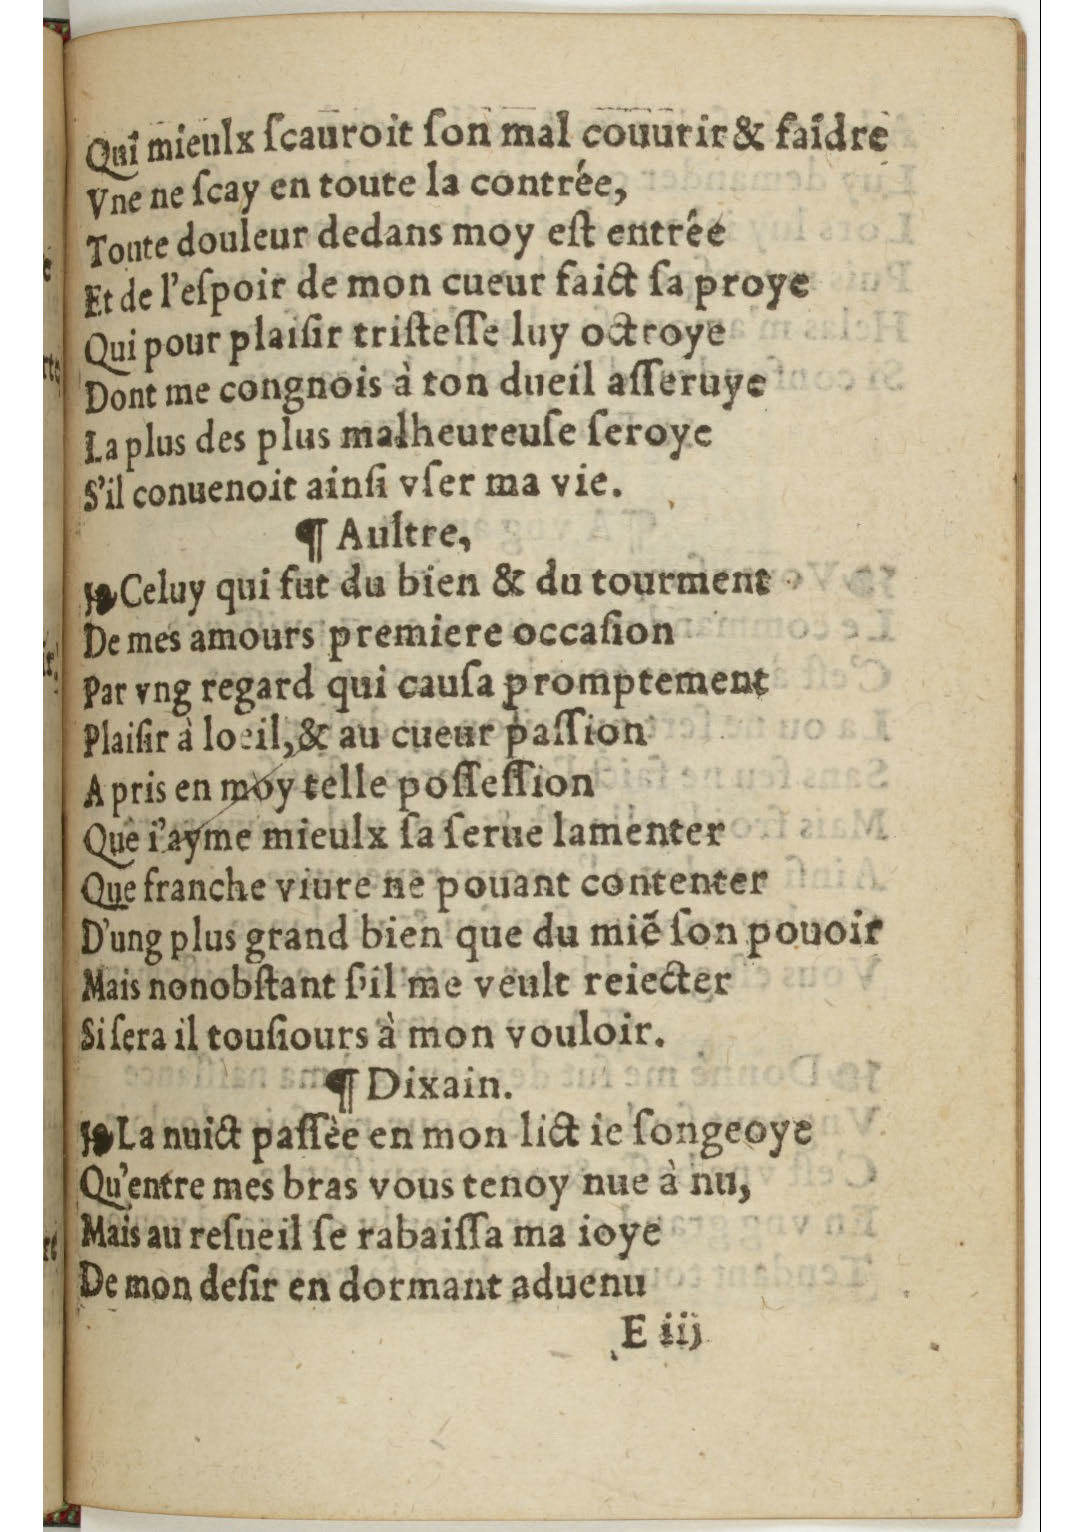 Qui mieulx ſcauroit ſon mal couurir & faîdre
Vne ne ſcay en toute la contrée,
Toute douleur dedans moy eſt entrée
Et de l'eſpoir de mon cueur faict ſa proye
Qui pour plaiſir triſteſſe luy octroye
Dont me congnois à ton dueil aſſeruye
La plus des plus malheureuſe ſeroye
S'il conuenoit ainſi vſer ma vie.
¶ Aultre,
Celuy qui fut du bien & du tourment
De mes amours premiere occaſion
Par vng regard qui cauſa promptement
Plaiſir à loeil, & au cueur paſſion
A pris en moy telle poſſeſſion
Que i'ayme mieulx ſa ſerue lamenter
Que franche viure ne pouant contenter
D'ung plus grand bien que du miẽ ſon pouoir
Mais nonobſtant ſ'il me veult reiecter
Si ſera il touſiours à mon vouloir.
¶ Dixain.
La nuict paſſèe en mon lict ie ſongeoye
Qu'entre mes bras vous tenoy nue à nu,
Mais au reſueil ſe rabaiſſa ma ioye
De mon deſir en dormant aduenu
E iij